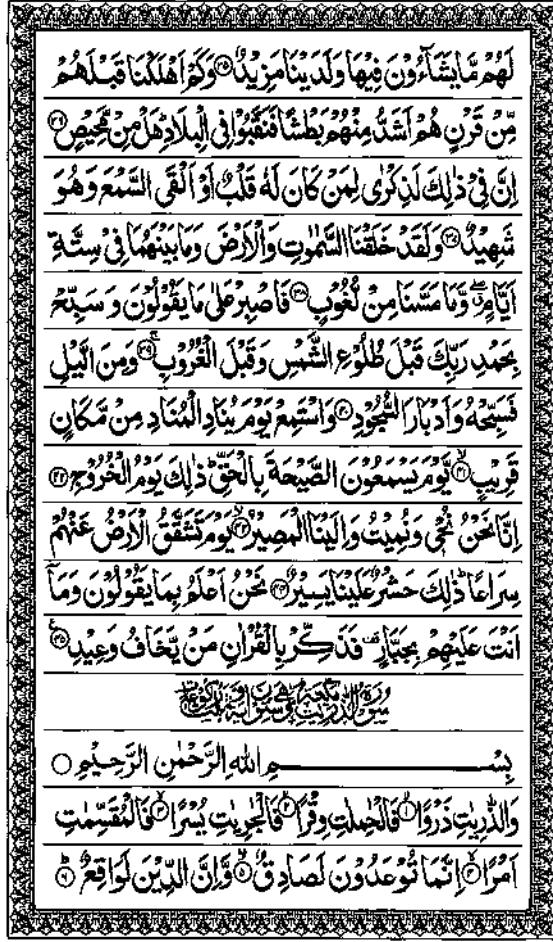 لَهُمْ مَّا يَشَآءُوْنَ فِيْهَا وَلَدَيْنَا مَزِيْدٌ ۝٣٥ وَكَمْ اَهْلَكْنَا قَبْلَهُمْ
مِّنْ قَرْنٍ هُمْ اَشَدُّ مِنْهُمْ بَطْشًا فَنَقَّبُوْا فِى الْبِلَادِ ؕ هَلْ مِنْ مَّحِيْصٍ ۝٣٦
اِنَّ فِىْ ذٰلِكَ لَذِكْرٰى لِمَنْ كَانَ لَهٗ قَلْبٌ اَوْ اَلْقَى السَّمْعَ وَهُوَ
شَهِيْدٌ ۝٣٧ وَلَقَدْ خَلَقْنَا السَّمٰوٰتِ وَالْاَرْضَ وَمَا بَيْنَهُمَا فِىْ سِتَّةِ
اَيَّامٍ ۖ وَّمَا مَسَّنَا مِنْ لُّغُوْبٍ ۝٣٨ فَاصْبِرْ عَلٰى مَا يَقُوْلُوْنَ وَسَبِّحْ
بِحَمْدِ رَبِّكَ قَبْلَ طُلُوْعِ الشَّمْسِ وَقَبْلَ الْغُرُوْبِ ۝٣٩ وَمِنَ الَّيْلِ
فَسَبِّحْهُ وَاَدْبَارَ السُّجُوْدِ ۝٤٠ وَاسْتَمِعْ يَوْمَ يُنَادِ الْمُنَادِ مِنْ مَّكَانٍ
قَرِيْبٍ ۝٤١ يَّوْمَ يَسْمَعُوْنَ الصَّيْحَةَ بِالْحَقِّ ؕ ذٰلِكَ يَوْمُ الْخُرُوْجِ ۝٤٢
اِنَّا نَحْنُ نُحْىٖ وَنُمِيْتُ وَاِلَيْنَا الْمَصِيْرُ ۝٤٣ يَوْمَ تَشَقَّقُ الْاَرْضُ عَنْهُمْ
سِرَاعًا ؕ ذٰلِكَ حَشْرٌ عَلَيْنَا يَسِيْرٌ ۝٤٤ نَحْنُ اَعْلَمُ بِمَا يَقُوْلُوْنَ وَمَاۤ
اَنْتَ عَلَيْهِمْ بِجَبَّارٍ ۫ فَذَكِّرْ بِالْقُرْاٰنِ مَنْ يَّخَافُ وَعِيْدِ ۝٤٥
سُوْرَةُ الذّٰرِيٰتِ مَكِّيَّةٌ
بِسْمِ اللهِ الرَّحْمٰنِ الرَّحِيْمِ ۝
وَالذّٰرِيٰتِ ذَرْوًا ۝١ فَالْحٰمِلٰتِ وِقْرًا ۝٢ فَالْجٰرِيٰتِ يُسْرًا ۝٣ فَالْمُقَسِّمٰتِ
اَمْرًا ۝٤ اِنَّمَا تُوْعَدُوْنَ لَصَادِقٌ ۝٥ وَّاِنَّ الدِّيْنَ لَوَاقِعٌ ۝٦